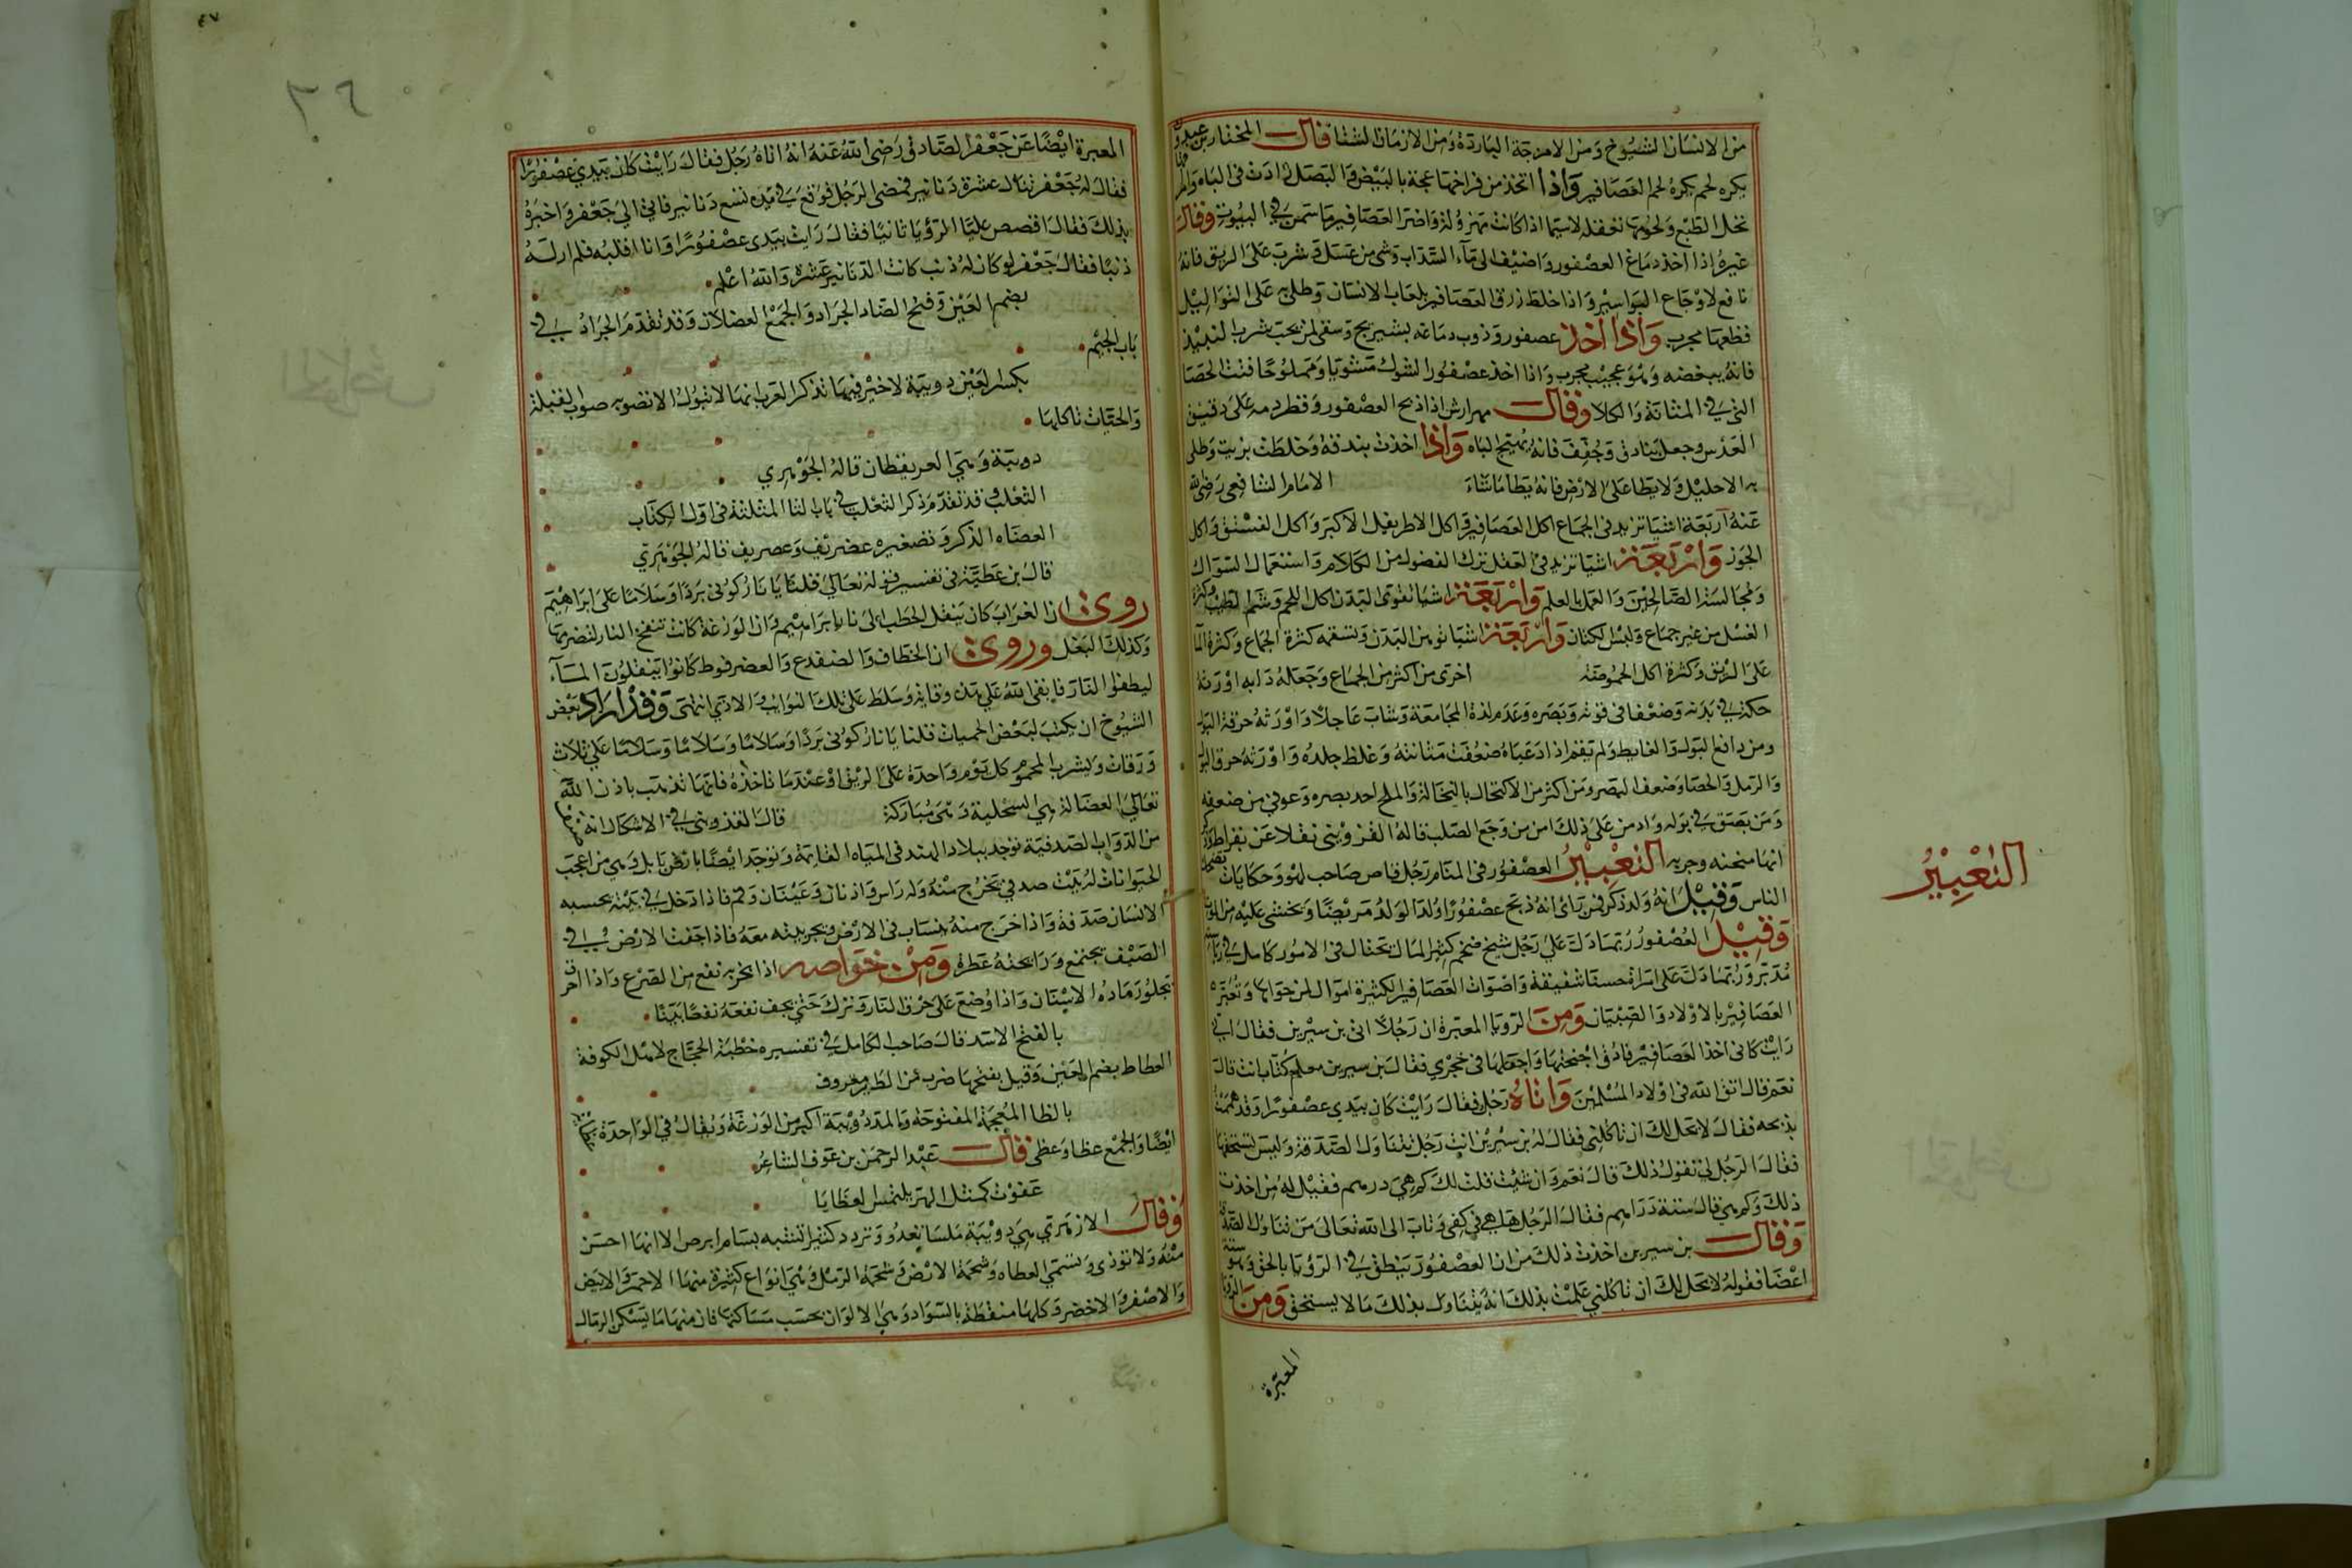 من الانسان الشيوخ ومن الامزجة الباردة ومن الازمان الشتا قال المختار بن عبدون
يكره لحم العصافير واذا اتخذ من فراخها عجة بالبيض والبصل زادت فى الباه والمرق
تحل الطبع ولحومها تعقله لاسيما اذا كانت مهزولة واضر العصافير ما سمن فى البيوت وقال
غيره اذا اخذ دماغ العصفور واضيف الى ماء السذاب وشى من عسل وشرب على الريق فانه
نافع لاوجاع البواسير واذا خلط زرق العصافير بلعاب الانسان وطلى به على الثواليل
قطعها مجرب واذا اخذ عصفور وذوب دماغه بشيرج وسقى لمن يحب شرب النبيذ
فانه يبغضه وهو عجيب مجرب واذا اخذ عصفور الشوك مشويا ومملوحا فتت الحصا
التى فى المثانة والكلا وقال مهرارش اذا ذبح العصفور وقطر دمه على دقيق
العدس وجعل بنادق وجفف فانه يهيج الباه واذا اخذت بندقة وخلطت بزيت وطلى
به الاحليل ولا يطا على الارض فانه يطا ما شاء الامام الشافعى رضى الله
عنه اربعة اشيا تزيد فى الجماع اكل العصافير واكل الاطريفل الاكبر واكل الفستق واكل
الجوز واربعة اشيا تزيد فى العقل ترك الفضول من الكلام واستعمال السواك
ومجالسة الصالحين والعمل بالعلم واربعة اشيا تقوى البدن اكل اللحم وشم الطيب وكثرة
الغسل من غير جماع ولبس الكتان واربعة اشيا توهن البدن وتسقمه كثرة الجماع وكثرة الما
على الريق وكثرة اكل الحموضة اخرى من اكثر من الجماع وجعله دابه اورثه
حكة فى بدنه وضعفا فى قوته وبصره وعدم لذة المجامعة وشاب عاجلا واورثه حرقة البول
ومن دافع البول والغايط ولم يقم اذا دعياه ضعفت مثانته وغلظ جلده واورثه حرق البول
والرمل والحصا وضعف البصر ومن اكثر من الاكتحال بالنخالة والملح احد بصره وعوفى من ضعفه
ومن بصق فى بوله وادمن على ذلك امن من وجع الصلب قاله القزوينى نقلا عن بقراط
انها منحنه وجربه التعبير العصفور فى المنام رجل قاص صاحب لهو وحكايات يضحك
الناس وقيل انه ولد ذكر فمن راى انه ذبح عصفورا ولد الولد مريضا ويخشى عليه من الموت
وقيل العصفور ربما دل على رجل شيخ ضخم كثير المال يحتال فى الامور كامل فى رياسته
مدبر وربما دل على امراة حسنا شفيقة واصوات العصافير الكثيرة اموال لمن حواها وتعبر
العصافير بالاولاد والصبيان ومن الرويا المعبرة ان رجلا اتى بن سيرين فقال انى
رايت كانى اخذ العصافير فادق اجنحتها واجعلها فى حجرى فقال بن سيرين معلم كتاب انت قال
نعم قال اتق الله فى اولاد المسلمين واتاه رجل فقال رايت كان بيدى عصفورا وقد هممت
بذبحه فقال لا يحل لك ان تاكلنى فقال له بن سيرين انت رجل تتناول الصدقة وليس تستحقها
فقال الرجل لى تقول ذلك قال نعم وان شئت قلت لك كم هى درهم فقيل له من اخذت
ذلك وكم هى قال ستة دراهم فقال الرجل هاهى فى كفى وتاب الى الله تعالى من تناول الصدقة
وقال بن سيرين اخذت ذلك من ان العصفور ينطق فى الرؤيا بالحق وهو ستة
اعضا فقوله لا يحل لك ان تاكلنى علمت بذلك انه يتناول بذلك ما لا يستحق ومن الرؤيا
المعبرة
التعبير
المعبرة ايضا عن جعفر الصادق رضى الله عنه انه اتاه رجل فقال رايت كان بيدى عصفورا
فقال له جعفر تنال عشرة دنانير فمضى الرجل فوقع فى يده تسع دنانير فاتى الى جعفر واخبره
بذلك فقال اقصص عليا الرؤيا ثانيا فقال رايت بيدى عصفورا وانا اقلبه فلم ار له
ذنبا فقال جعفر لو كان له ذنب كانت الدنانير عشرة والله اعلم
بضم العين وفتح الضاد الجراد والجمع العضلان وقد تقدم الجراد فى
باب الجيم
بكسر العين دويبة لا خير فيها تذكر العرب انها لا تبول الا نصوبه صواب القبلة
والحيات تاكلها
دويبة وهى العريقطان قاله الجوهرى
الثعلب وقد تقدم ذكر الثعلب فى باب الثا المثلثة فى اول الكتاب
العضاه الذكر وتصغيره عضريف وعصريف قاله الجوهرى
قال بن عطية فى تفسير قوله تعالى قلنا يا نار كونى بردا وسلاما على ابراهيم
روى ان الغراب كان ينقل الحطب الى نار ابراهيم وان الوزغة كانت تنفخ النار لتضرمها
وكذلك البغل وروى ان الخطاف والضفدع والعضرفوط كانوا ينقلون الماء
ليطفوا النار فابقى الله على هذه وقاية وسلط على تلك النوايب والاذى انتهى وقد اراد بعض
الشيوخ ان يكتب لبعض الحميات قلنا يا نار كونى بردا وسلاما وسلاما وسلاما على ثلاث
ورقات ويشرب المحموم كل يوم واحدة على الريق او عندما تاخذه فانها تذهب باذن الله
تعالى العضالة هى السحلية وهى مباركة قال القزوينى فى الاشكال انه
من الدواب الصدفية توجد ببلاد الهند فى المياه القايمة وتوجد ايضا بارض بابل وهى من اعجب
الحيوانات له بيت صدفى تخرج منه وله راس واذنان وعينان وفم فاذا دخل فى بيته يحسبه
الانسان صدفة واذا خرج منه ينساب فى الارض ويجر بيته معه فاذا جفت الارض فى
الصيف يجتمع ورايحته عطرة ومن خواصه اذا بخر به نفع من الصرع واذا احرق
يجلو رماده الاسنان واذا وضع على حرق النار وترك حتى يجف نفعه نفعا بينا
بالفتح الاسد قال صاحب الكامل فى تفسيره خطبة الحجاج لاهل الكوفة
العطاط بضم العين وقيل بفتحها ضرب من الطير معروف
بالظا المعجمة المفتوحة والمد دويبة اكبر من الوزغة ويقال فى الواحدة
ايضا والجمع عظا وعظى قال عبد الرحمن بن عوف الشاعر
عفوت كمثل الهر يلتمس العظايا
وقال الازهرى هى دويبة ملسا تعدو وتردد كثيرا تشبه بسام ابرص الا انها احسن
منه ولا توذى وتسمى العطاه وشحمة الارض وشحمة الرمل وهى انواع كثيرة منها الاحمر والابيض
والاصفر والاخضر وكلها منقطة بالسواد وهى الالوان بحسب مساكنها فان منها ما يسكن الرمال